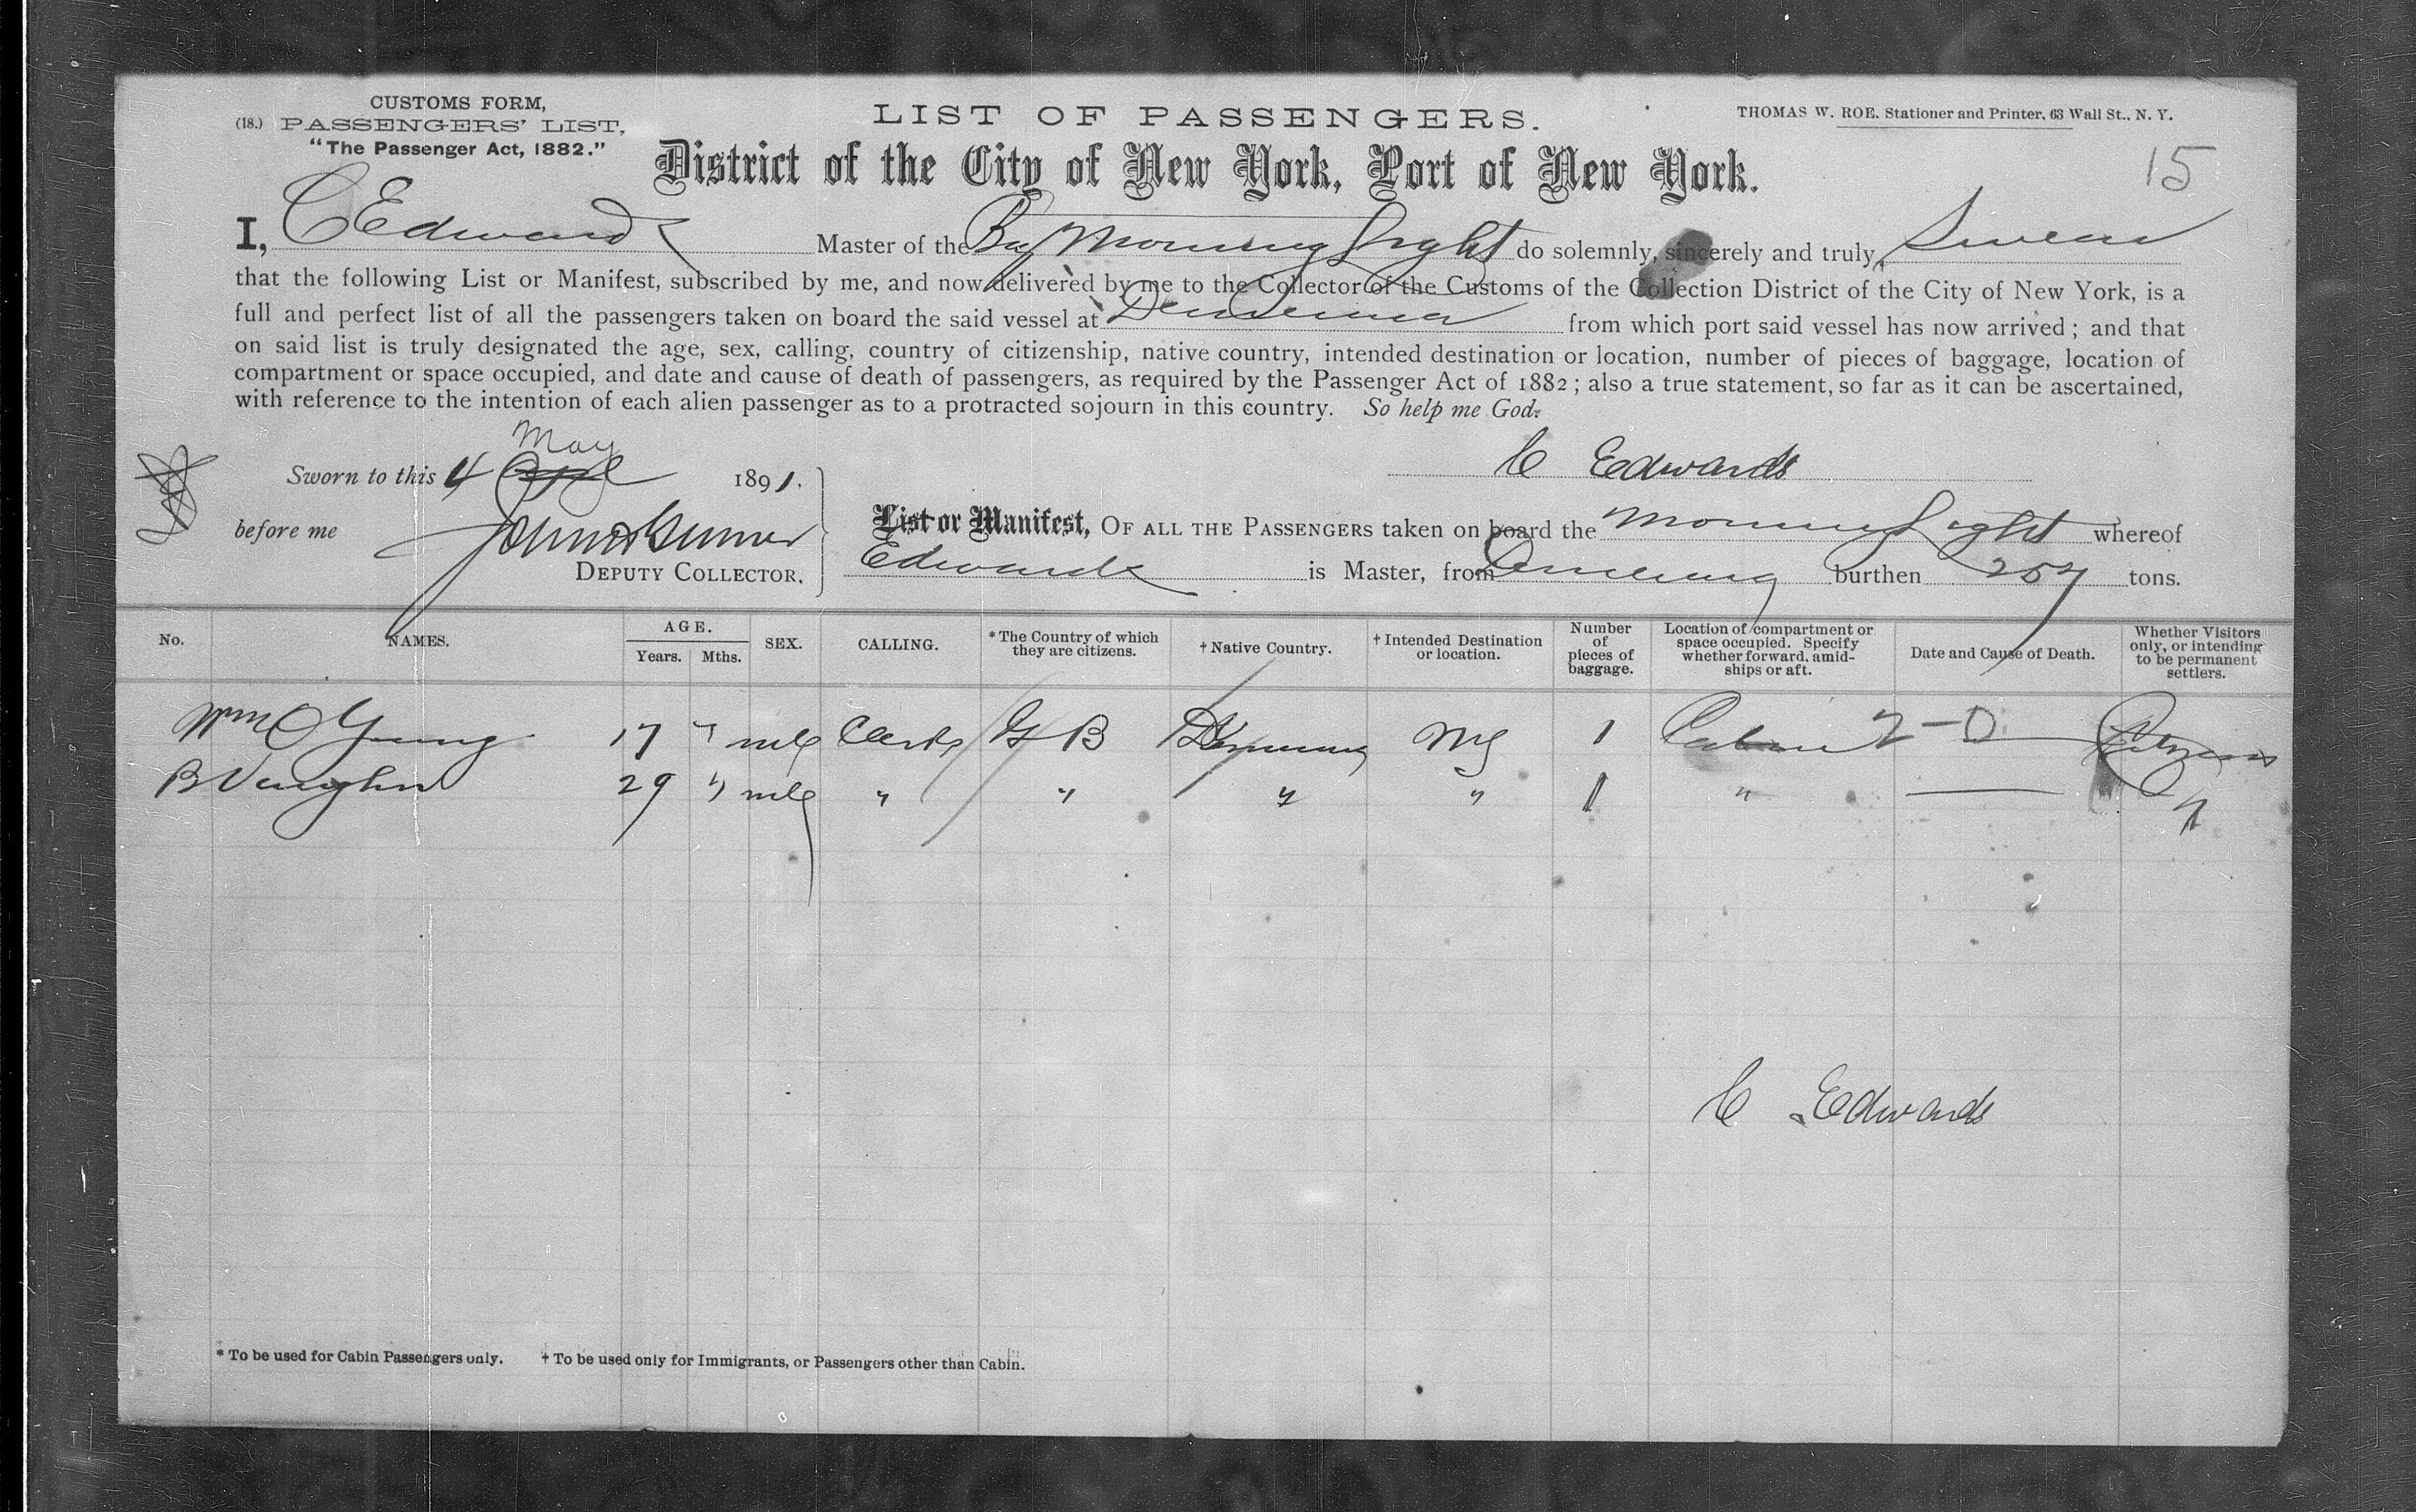 CUSTOMS FORM,
(18.) PASSENGERS' LIST,
"The Passenger Act, 1882."
LIST OF PASSENGERS.
THOMAS W. ROE. Stationer and Printer, 63 Wall St., N. Y.
District of the City of New York, Port of New York.
15
I, C Edwards Master of the Morning Light do solemnly, sincerely and truly, Swear
that the following List or Manifest, subscribed by me, and now delivered by me to the Collector of the Customs of the Collection District of the City of New York, is a
full and perfect list of all the passengers taken on board the said vessel at Demerara from which port said vessel has now arrived; and that
on said list is truly designated the age, sex, calling, country of citizenship, native country, intended destination or location, number of pieces of baggage, location of
compartment or space occupied, and date and cause of death of passengers, as required by the Passenger Act of 1882; also a true statement, so far as it can be ascertained,
with reference to the intention of each alien passenger as to a protracted sojourn in this country. So help me God.
May
Sworn to this 4 1891.
C Edwards
before me
DEPUTY COLLECTOR.
List or Manifest, OF ALL THE PASSENGERS taken on board the Morning Light whereof
Edwards is Master, from burthen 257 tons.
No. NAMES. AGE. Years. Mths. SEX. CALLING. *The Country of which they are citizens. †Native Country. †Intended Destination or location. Number of pieces of baggage. Location of compartment or space occupied. Specify whether forward, amidships or aft. Date and Cause of Death. Whether Visitors only, or intending to be permanent settlers.
Wm O Young 17 " mle Clerk G B NY 1 Cabin
B Vaughn 29 " mle " " " " 1 " "
C Edwards
* To be used for Cabin Passengers only. † To be used only for Immigrants, or Passengers other than Cabin.